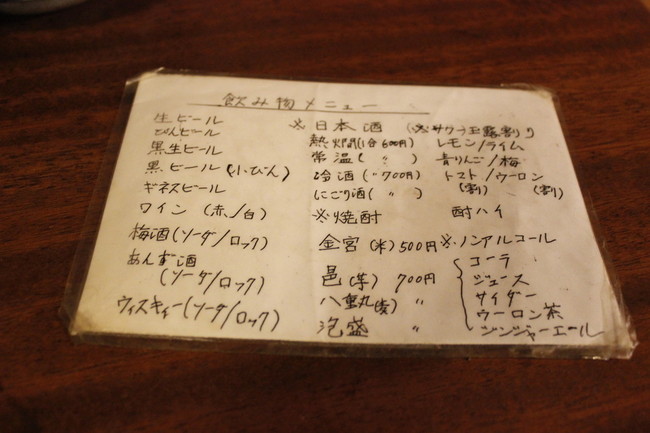 飲み物メニュー
生ビール
びんビール
黒生ビール
黒ビール(小びん)
ギネスビール
ワイン(赤/白)
梅酒(ソーダ/ロック)
あんず酒
(ソーダ/ロック)
ウィスキィー(ソーダ/ロック)
※日本酒
熱燗(1合600円)
常温(〃)
冷酒(〃700円)
にごり酒(〃)
※焼酎
金宮(米)500円
邑(芋)700円
八重丸(麦)〃
泡盛〃
(※サワー玉露割り
レモン/ライム
青りんご/梅
トマト/ウーロン
(割)(割)
酎ハイ
※ノンアルコール
コーラ
ジュース
サイダー
ウーロン茶
ジンジャーエール